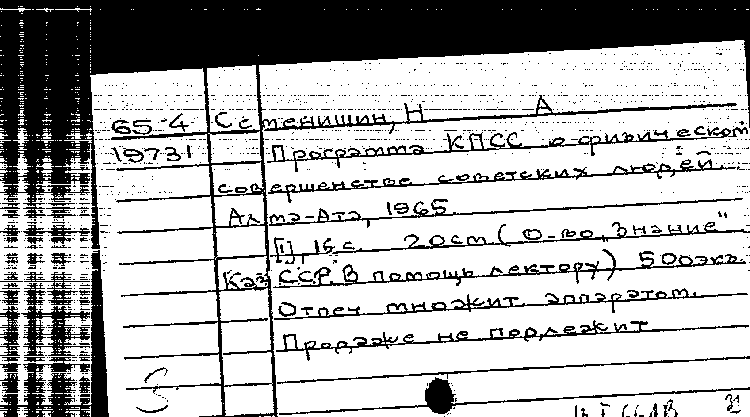 65-4 Сетенишин, Н А
19731 Программа КПСС о физическом
совершенстве советских людей.
Алма-Ата, 1965.
[1], 15 с. 20 см (О-во „Знание"
Каз ССР. В помощь лектору) 500 экз.
Отпеч. множит. аппаратом.
Продаже не подлежит
3